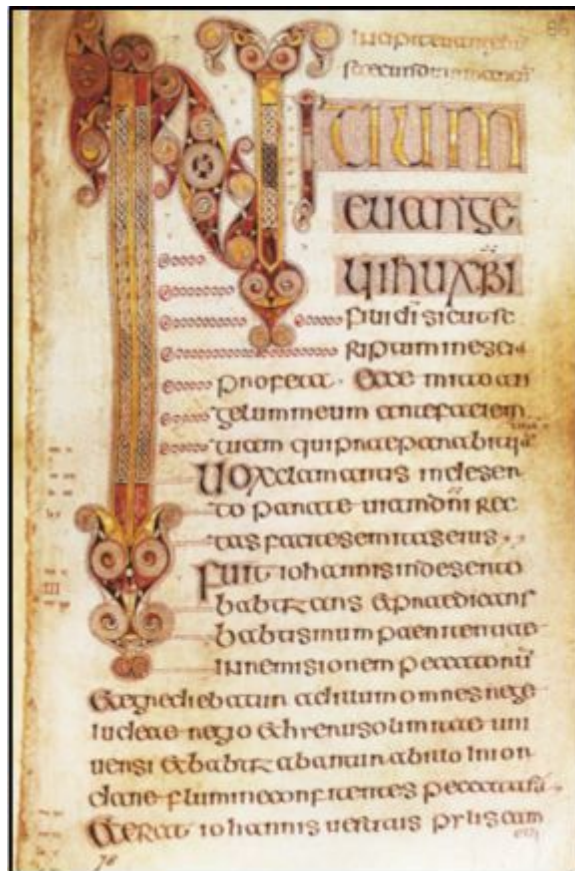 86
INITIUM
euange
lii ihu xpi
filii di sicut sc
riptum in esaia
profeta · Ecce mitto an
gelum meum ante faciem
tuam qui praeparabit
Uox clamantis in deser
to parate uiam dni rec
tas facite semitas eius
Fuit iohannis in deserto
babtizans & praedicans
babtismum paenitentiae
in remisionem peccatorū
& egrediebatur ad illum omnes
iudeae regio & uni
uersi & babtizabantur ab illo in ior
dane flumine confitentes peccata sua
& erat iohannis uestitus pylis cam